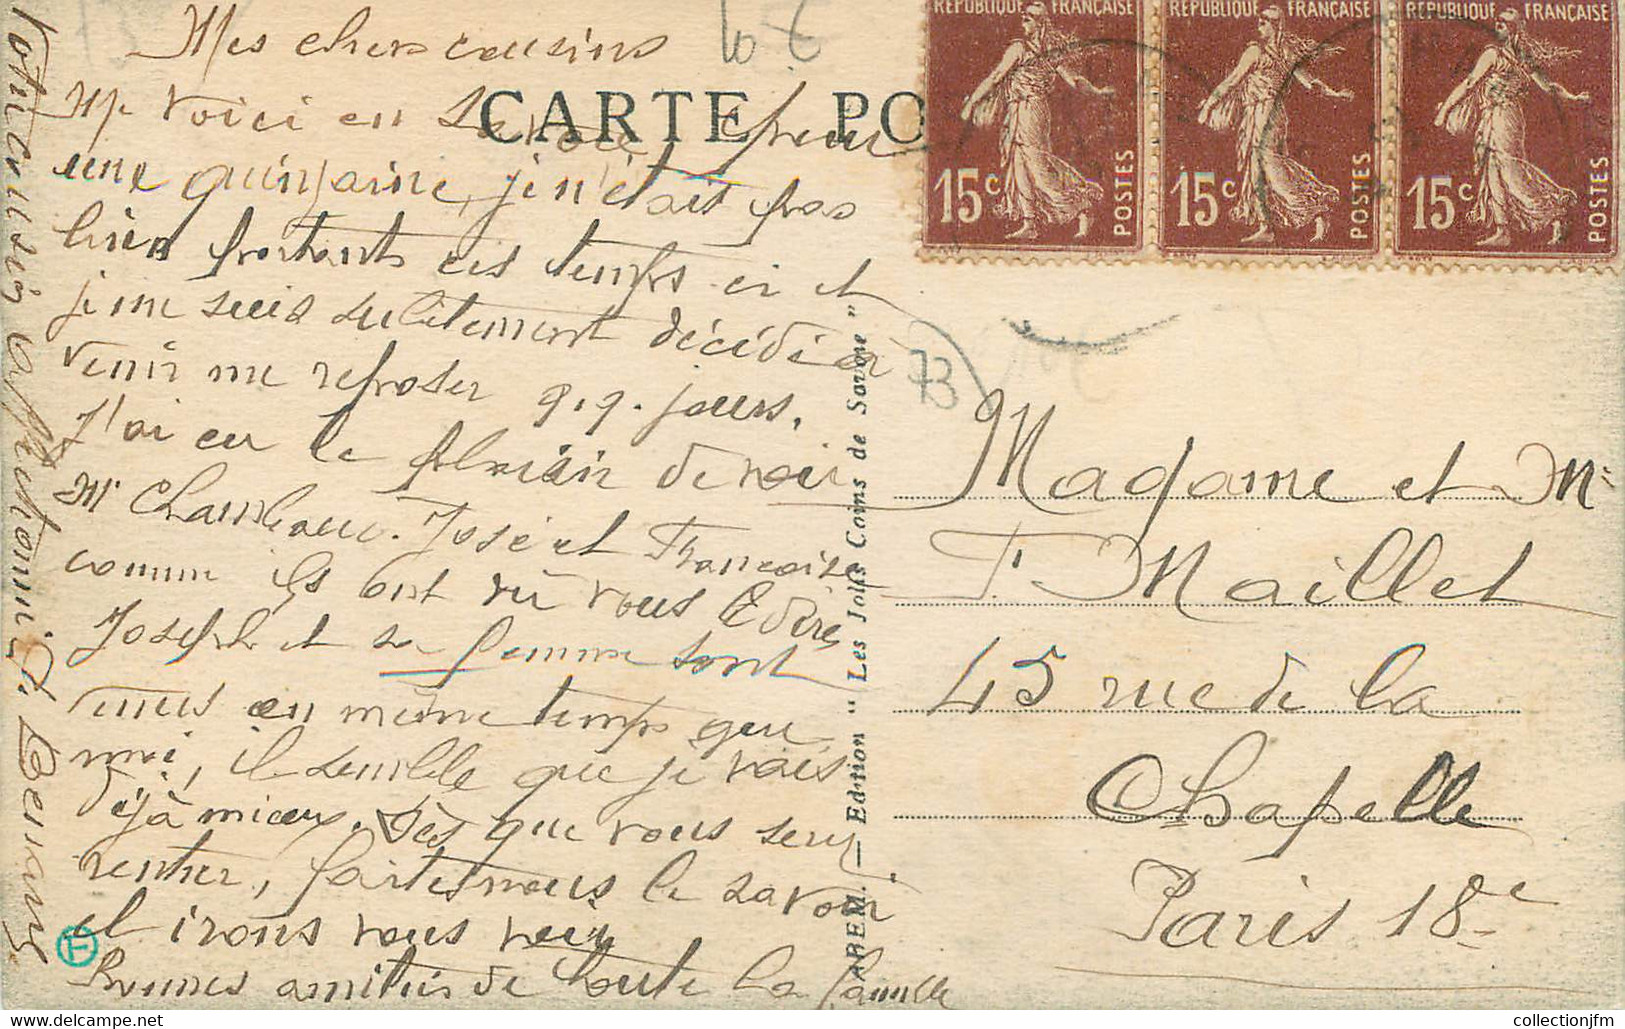 RÉPUBLIQUE FRANÇAISE RÉPUBLIQUE FRANÇAISE RÉPUBLIQUE FRANÇAISE
15c POSTES 15c POSTES 15c POSTES
CARTE PO
Mes chers cousins
Me voici en Savoie pour
une quinzaine, je n'étais pas
bien portant ces temps ci et
je me suis subitement décidé à
venir me reposer q.q. jours.
J'ai eu le plaisir de voir
Mr Chambaux. José et Françoise
comme ils ont dû vous le dire
Joseph et sa femme sont
venus en même temps que
moi, il semble que je vais
déjà mieux. Dès que vous serez
rentrer, faites nous le savoir
et irons vous voir
Bonnes amitiés de toute la famille
Votre cousin affectionné
73
ABEM. — Edition " Les Jolis Coins de Savoie "
Madame et Mr
F. Maillet
45 rue de la
Chapelle
Paris 18e
collectionjfm